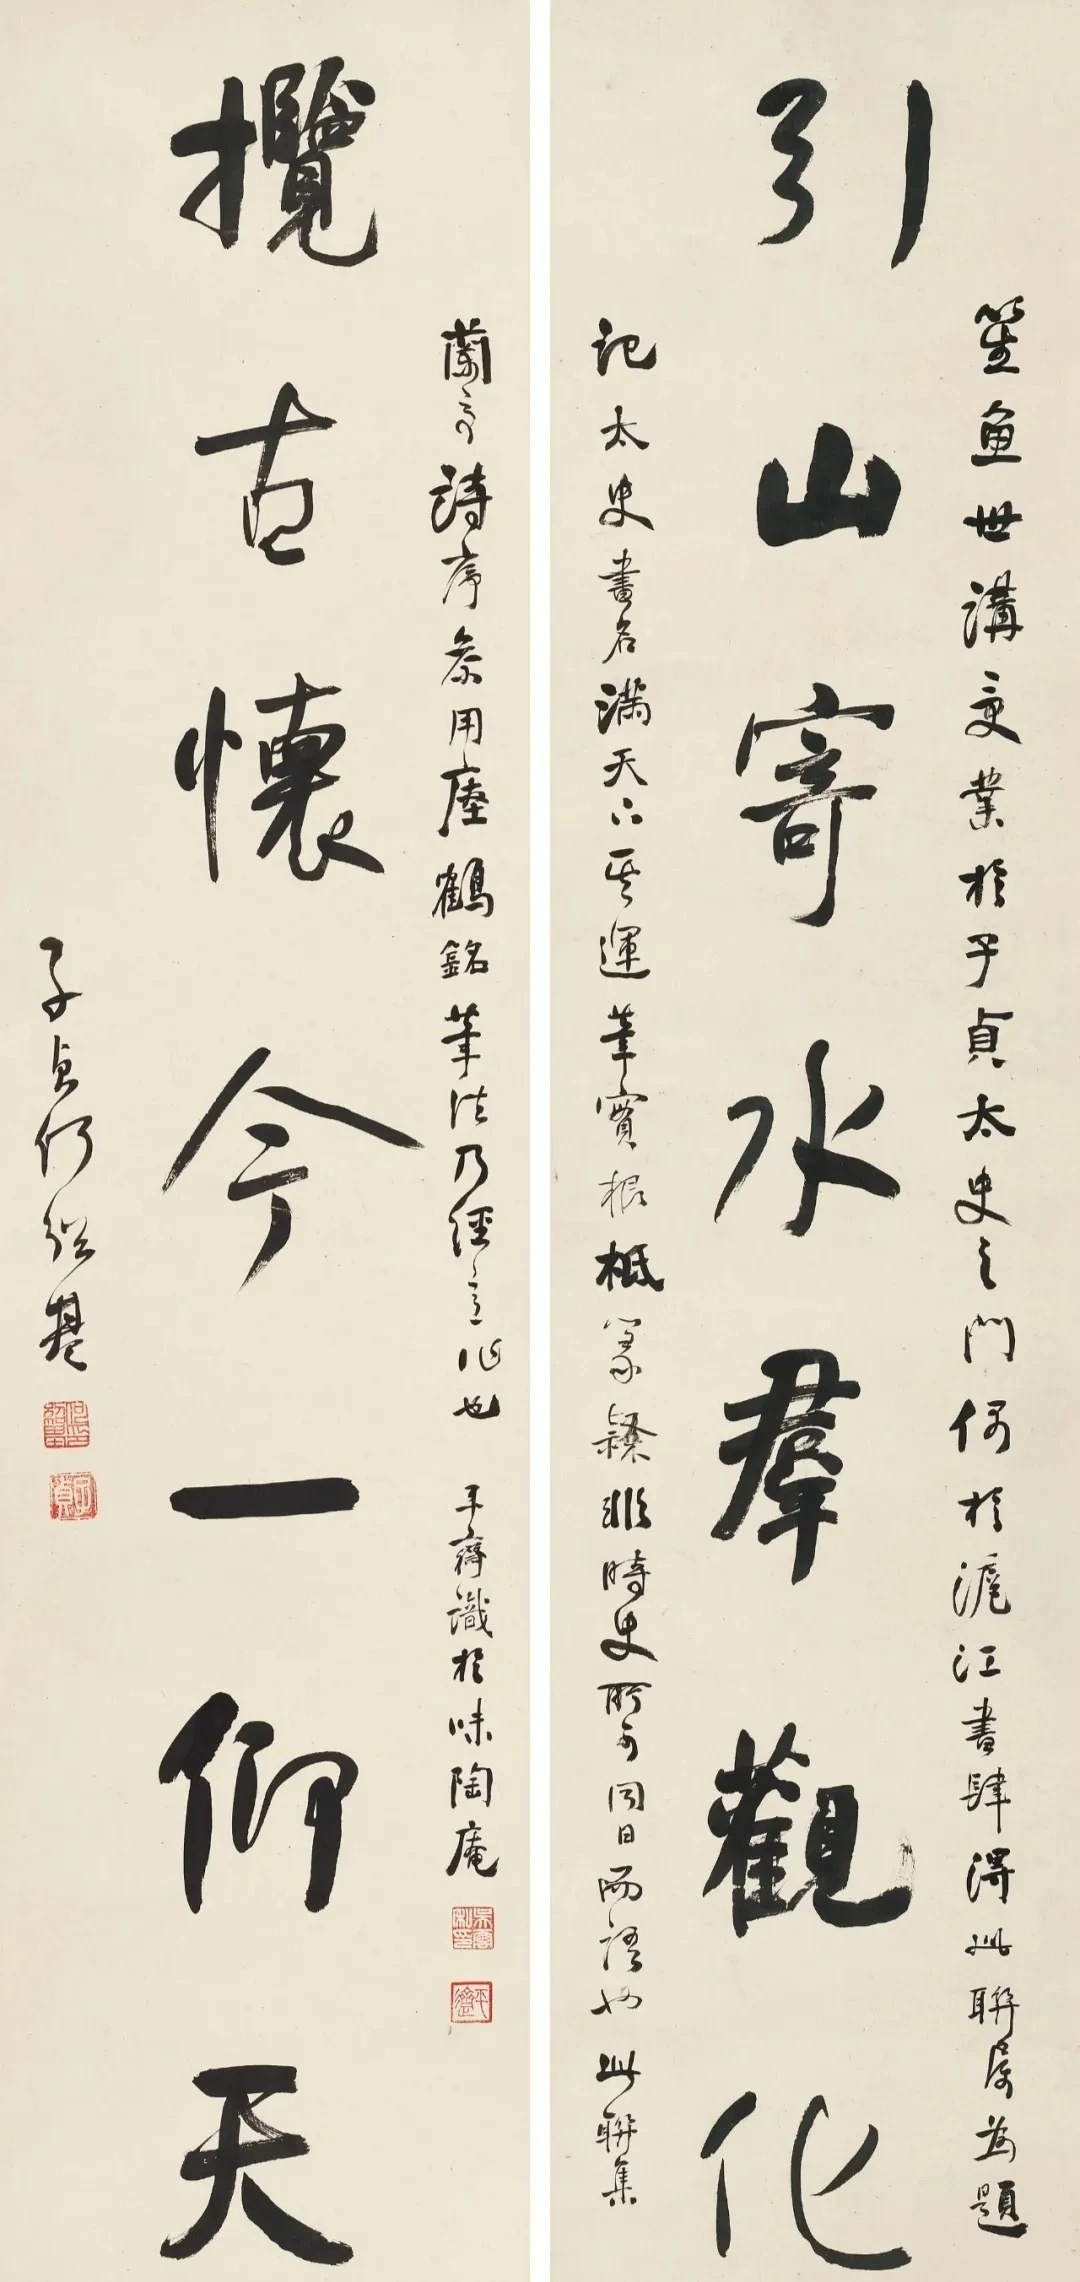 引山寄水羣觀化
笙魚世講受業於子貞太史之門偶於滬江書肆得此聯属為題
記太史書名滿天下其運筆實根柢篆籀非時史所可同日而語也此聯集
攬古懷今一仰天
蘭亭詩序參用瘞鶴銘筆法乃經意作也
平齋識於味陶庵
子貞何紹基
子貞
平齋